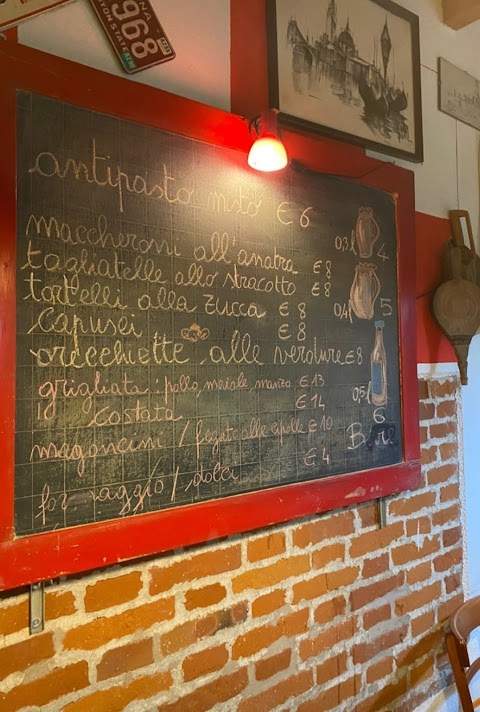 NA
968
antipasto misto € 6
maccheroni all'anatra € 8
tagliatelle allo stracotto € 8
tortelli alla zucca € 8
capusei € 8
orecchiette alle verdure € 8
grigliata: pollo, maiale, manzo € 13
costata € 14
magoncini / fegato alle cipolle € 10
formaggio / dolci € 4
03l 4
04l 5
05l 6